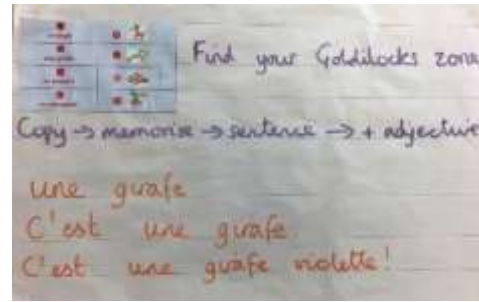 Find your Goldilocks zone
Copy → memorise → sentence → + adjective
une girafe
C'est une girafe.
C'est une girafe violette!